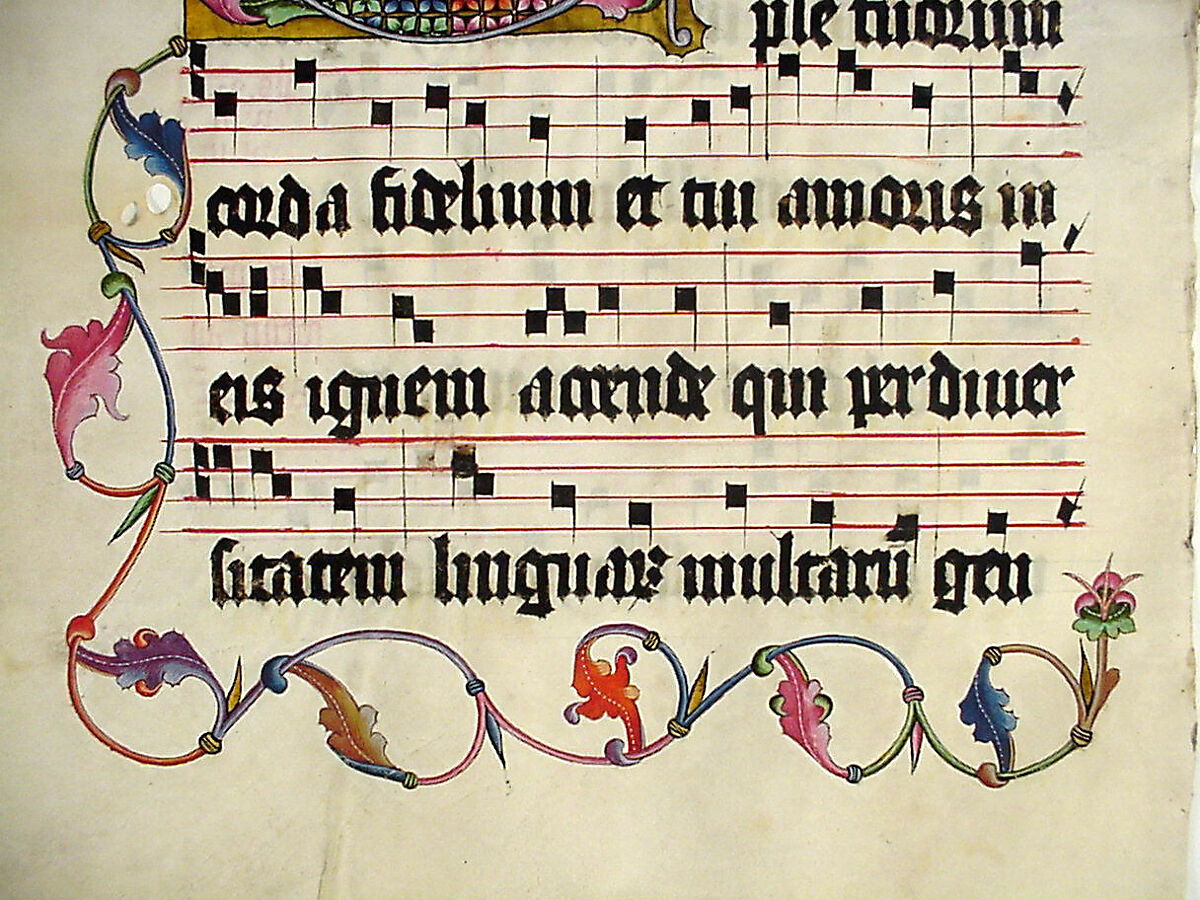 ple tuorum
corda fidelium et tui amoris in
eis ignem accende qui per diuer
sitatem linguaꝝ multarū gen